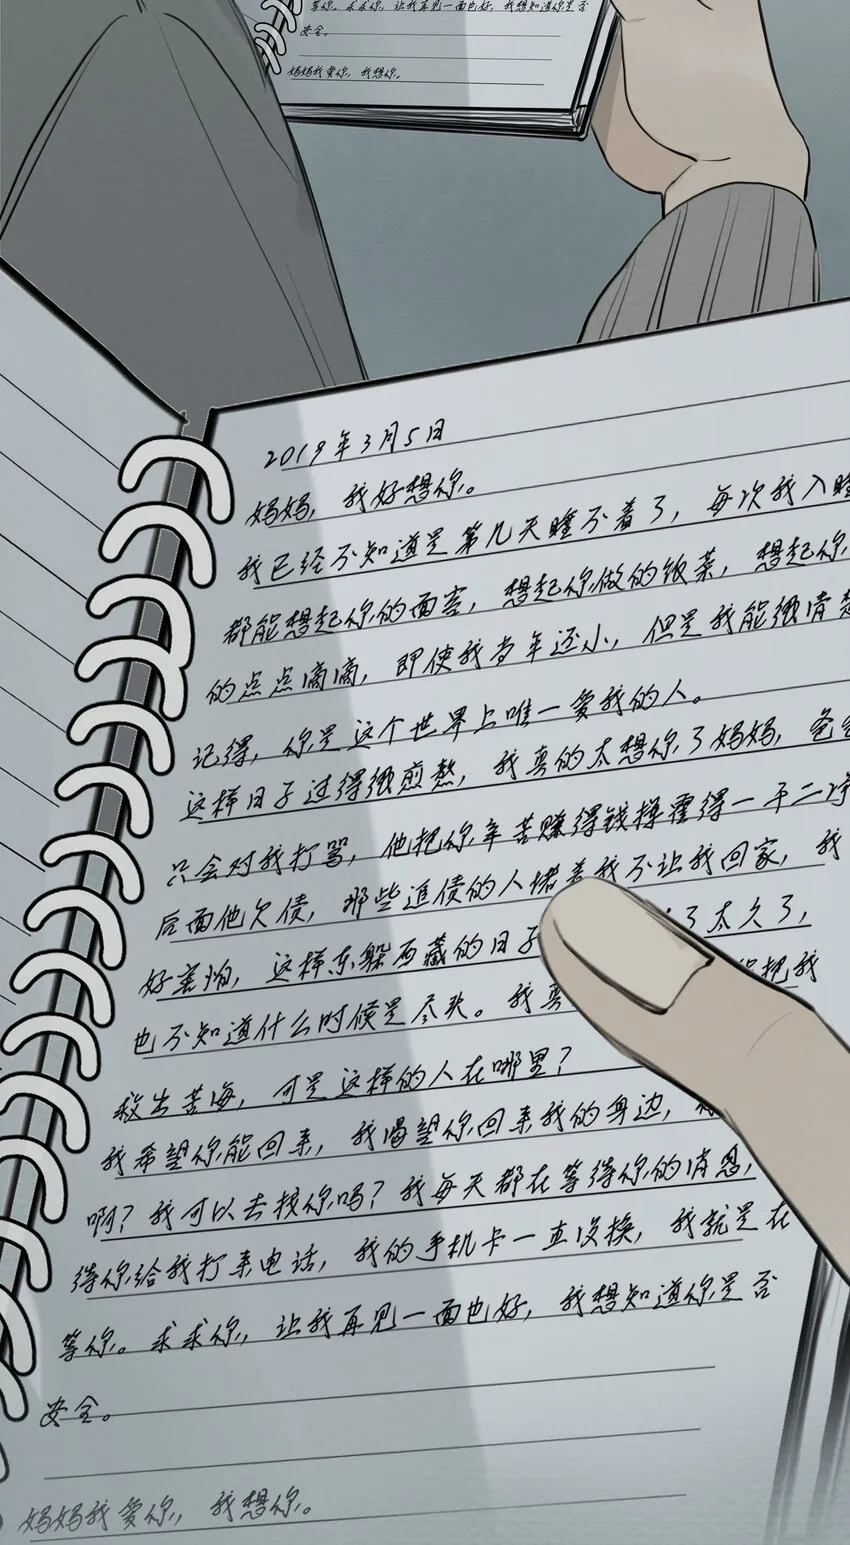 等你。求求你，让我再见一面也好，我想知道你是否
安全。
妈妈我爱你，我想你。
2019年3月5日
妈妈，我好想你。
我已经不知道是第几天睡不着了，每次我入睡
都能想起你的面容，想起你做的饭菜，想起你
的点点滴滴，即使我当年还小，但是我能很清楚
记得，你是这个世界上唯一爱我的人。
这样日子过得很煎熬，我真的太想你了妈妈，爸爸
只会对我打骂，他把你辛苦赚得钱挥霍得一干二净
后面他欠债，那些追债的人堵着我不让我回家，我
好害怕，这样东躲西藏的日子 了太久了，
也不知道什么时候是尽头。我真 把我
救出苦海，可是这样的人在哪里？
我希望你能回来，我渴望你回来我的身边，
啊？我可以去找你吗？我每天都在等待你的消息，
待你给我打来电话，我的手机卡一直没换，我就是在
等你。求求你，让我再见一面也好，我想知道你是否
安全。
妈妈我爱你，我想你。